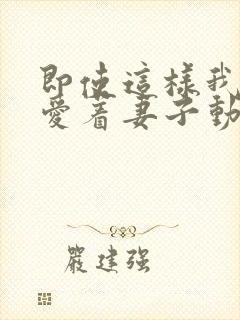 即使這樣我
愛着妻子動
嚴建强